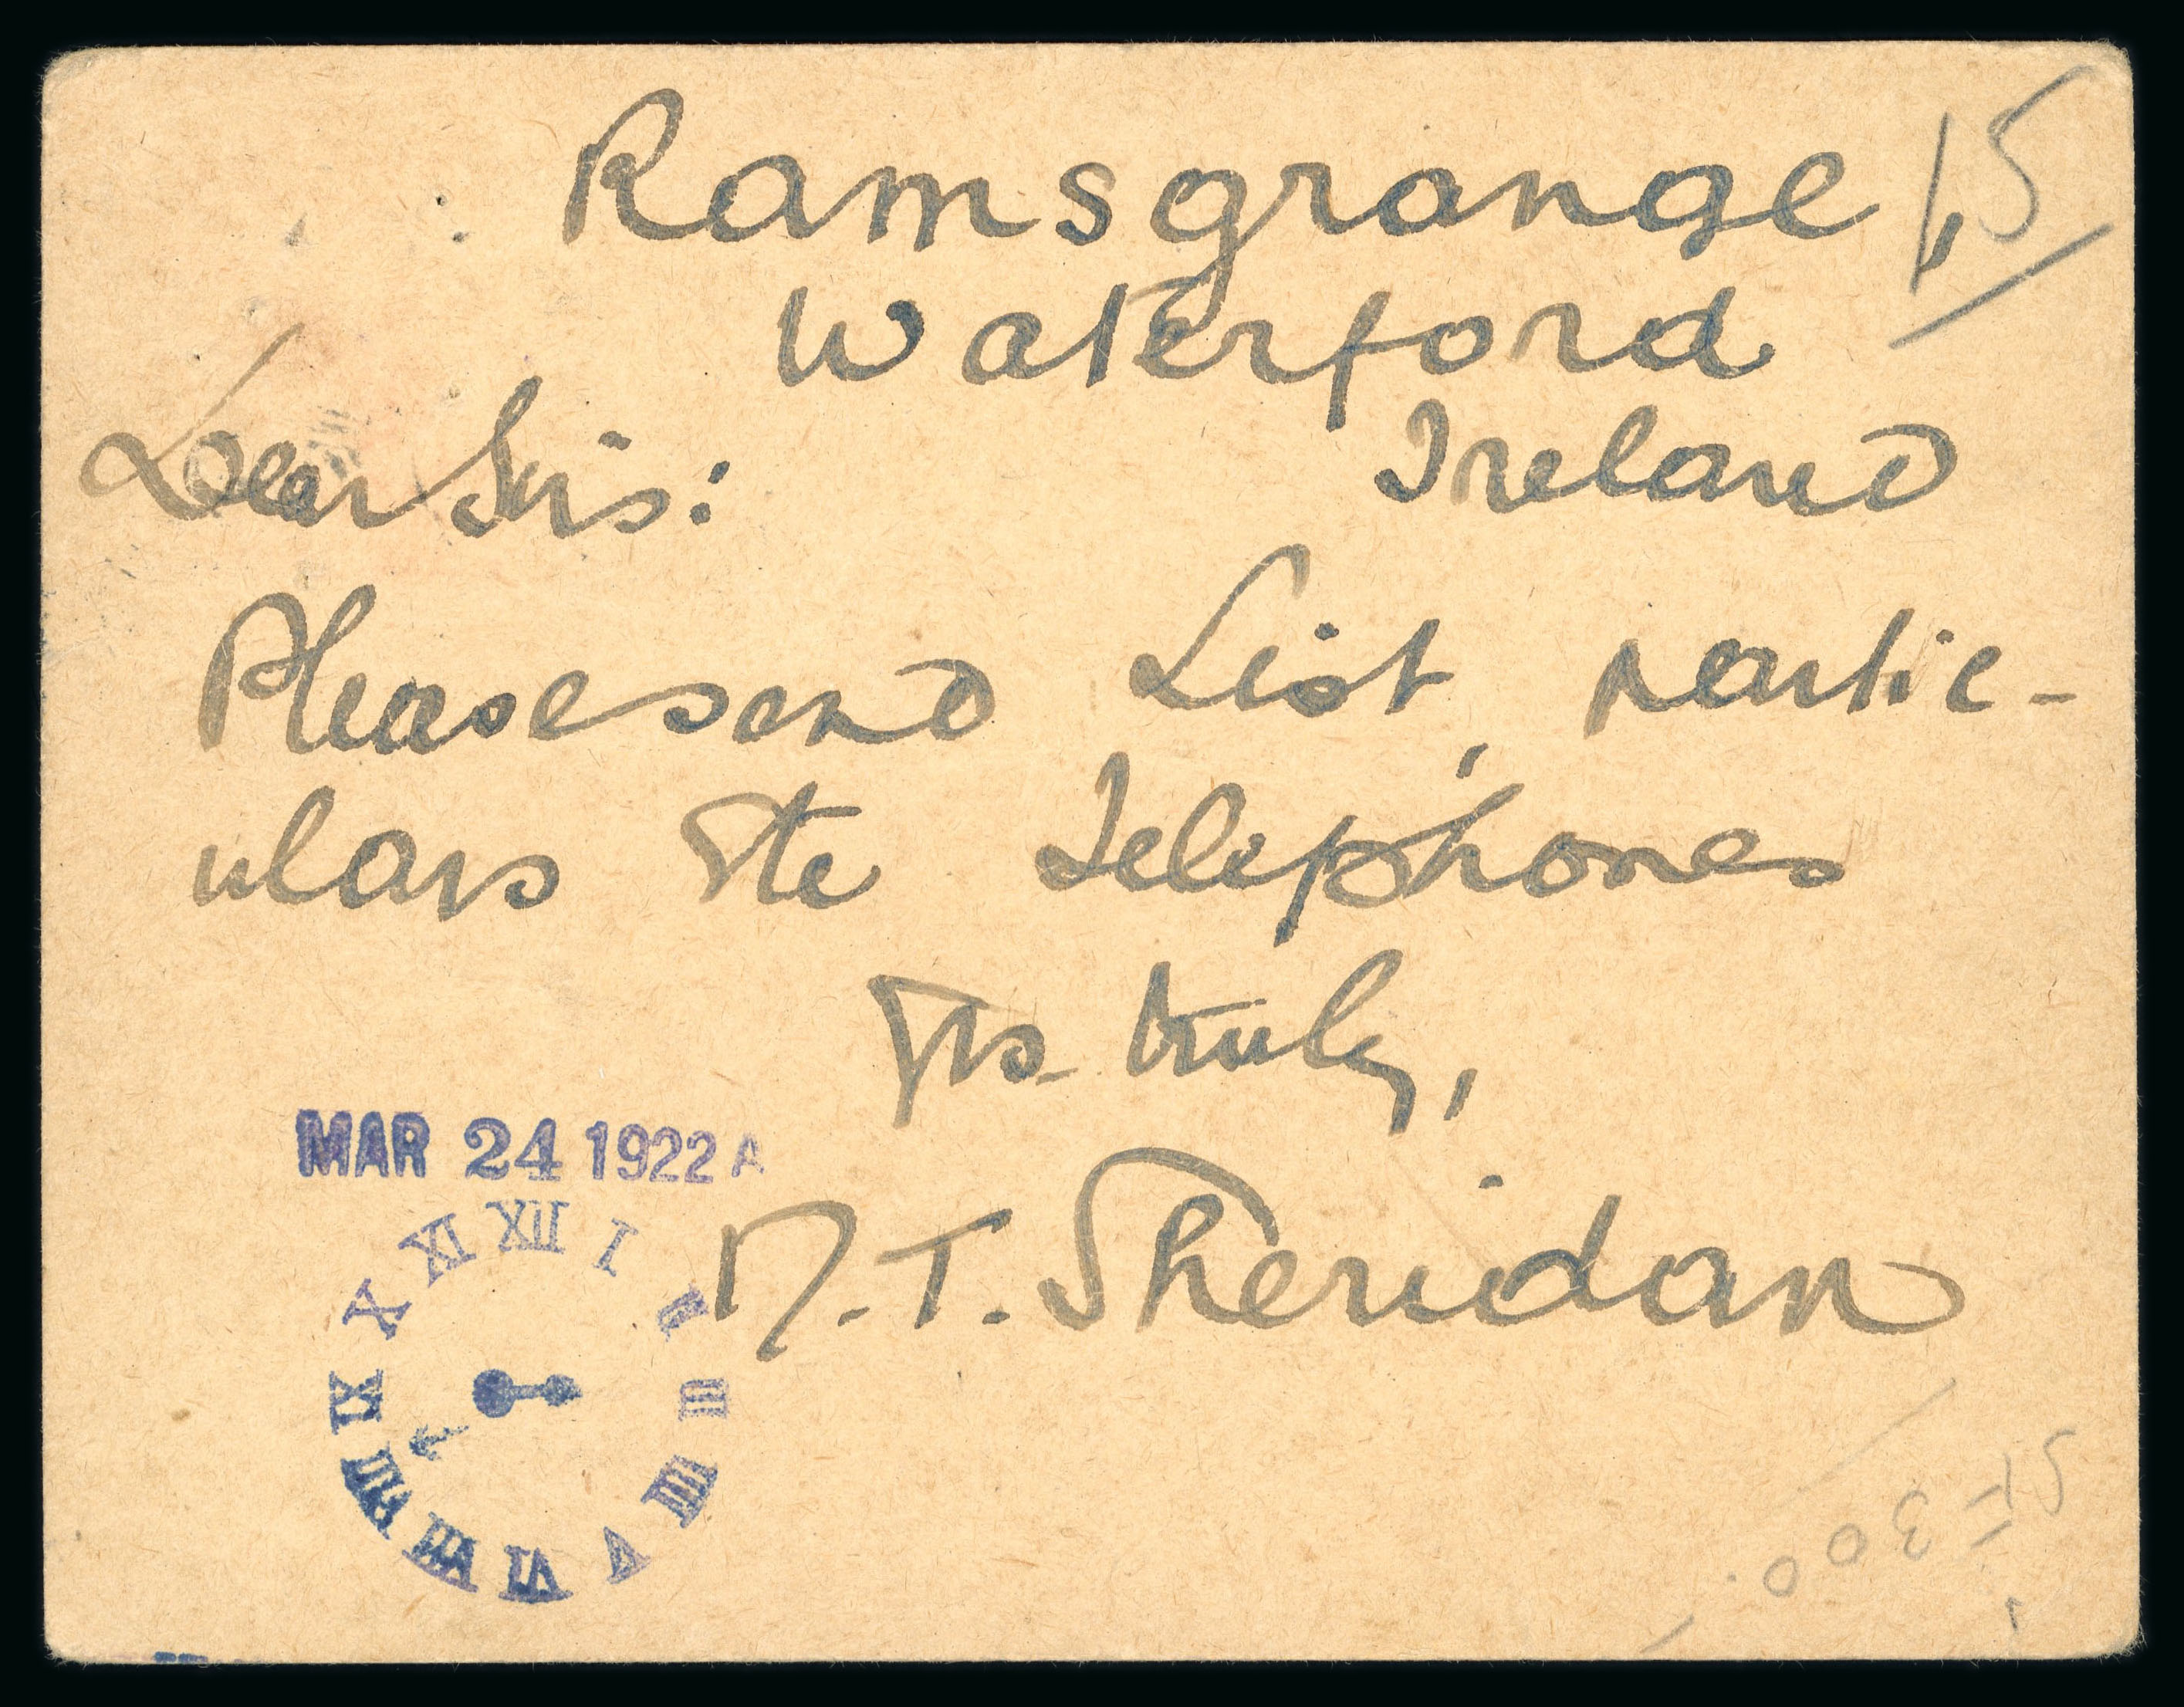 Ramsgrange,
Waterford
Ireland
Dear Sirs:
Please send List, partic-
ulars Ste Telephones
Yrs truly,
M.T. Sheridan
MAR 24 1922 A
XII
I
II
III
IIII
V
VI
VII
VIII
IX
X
XI
15